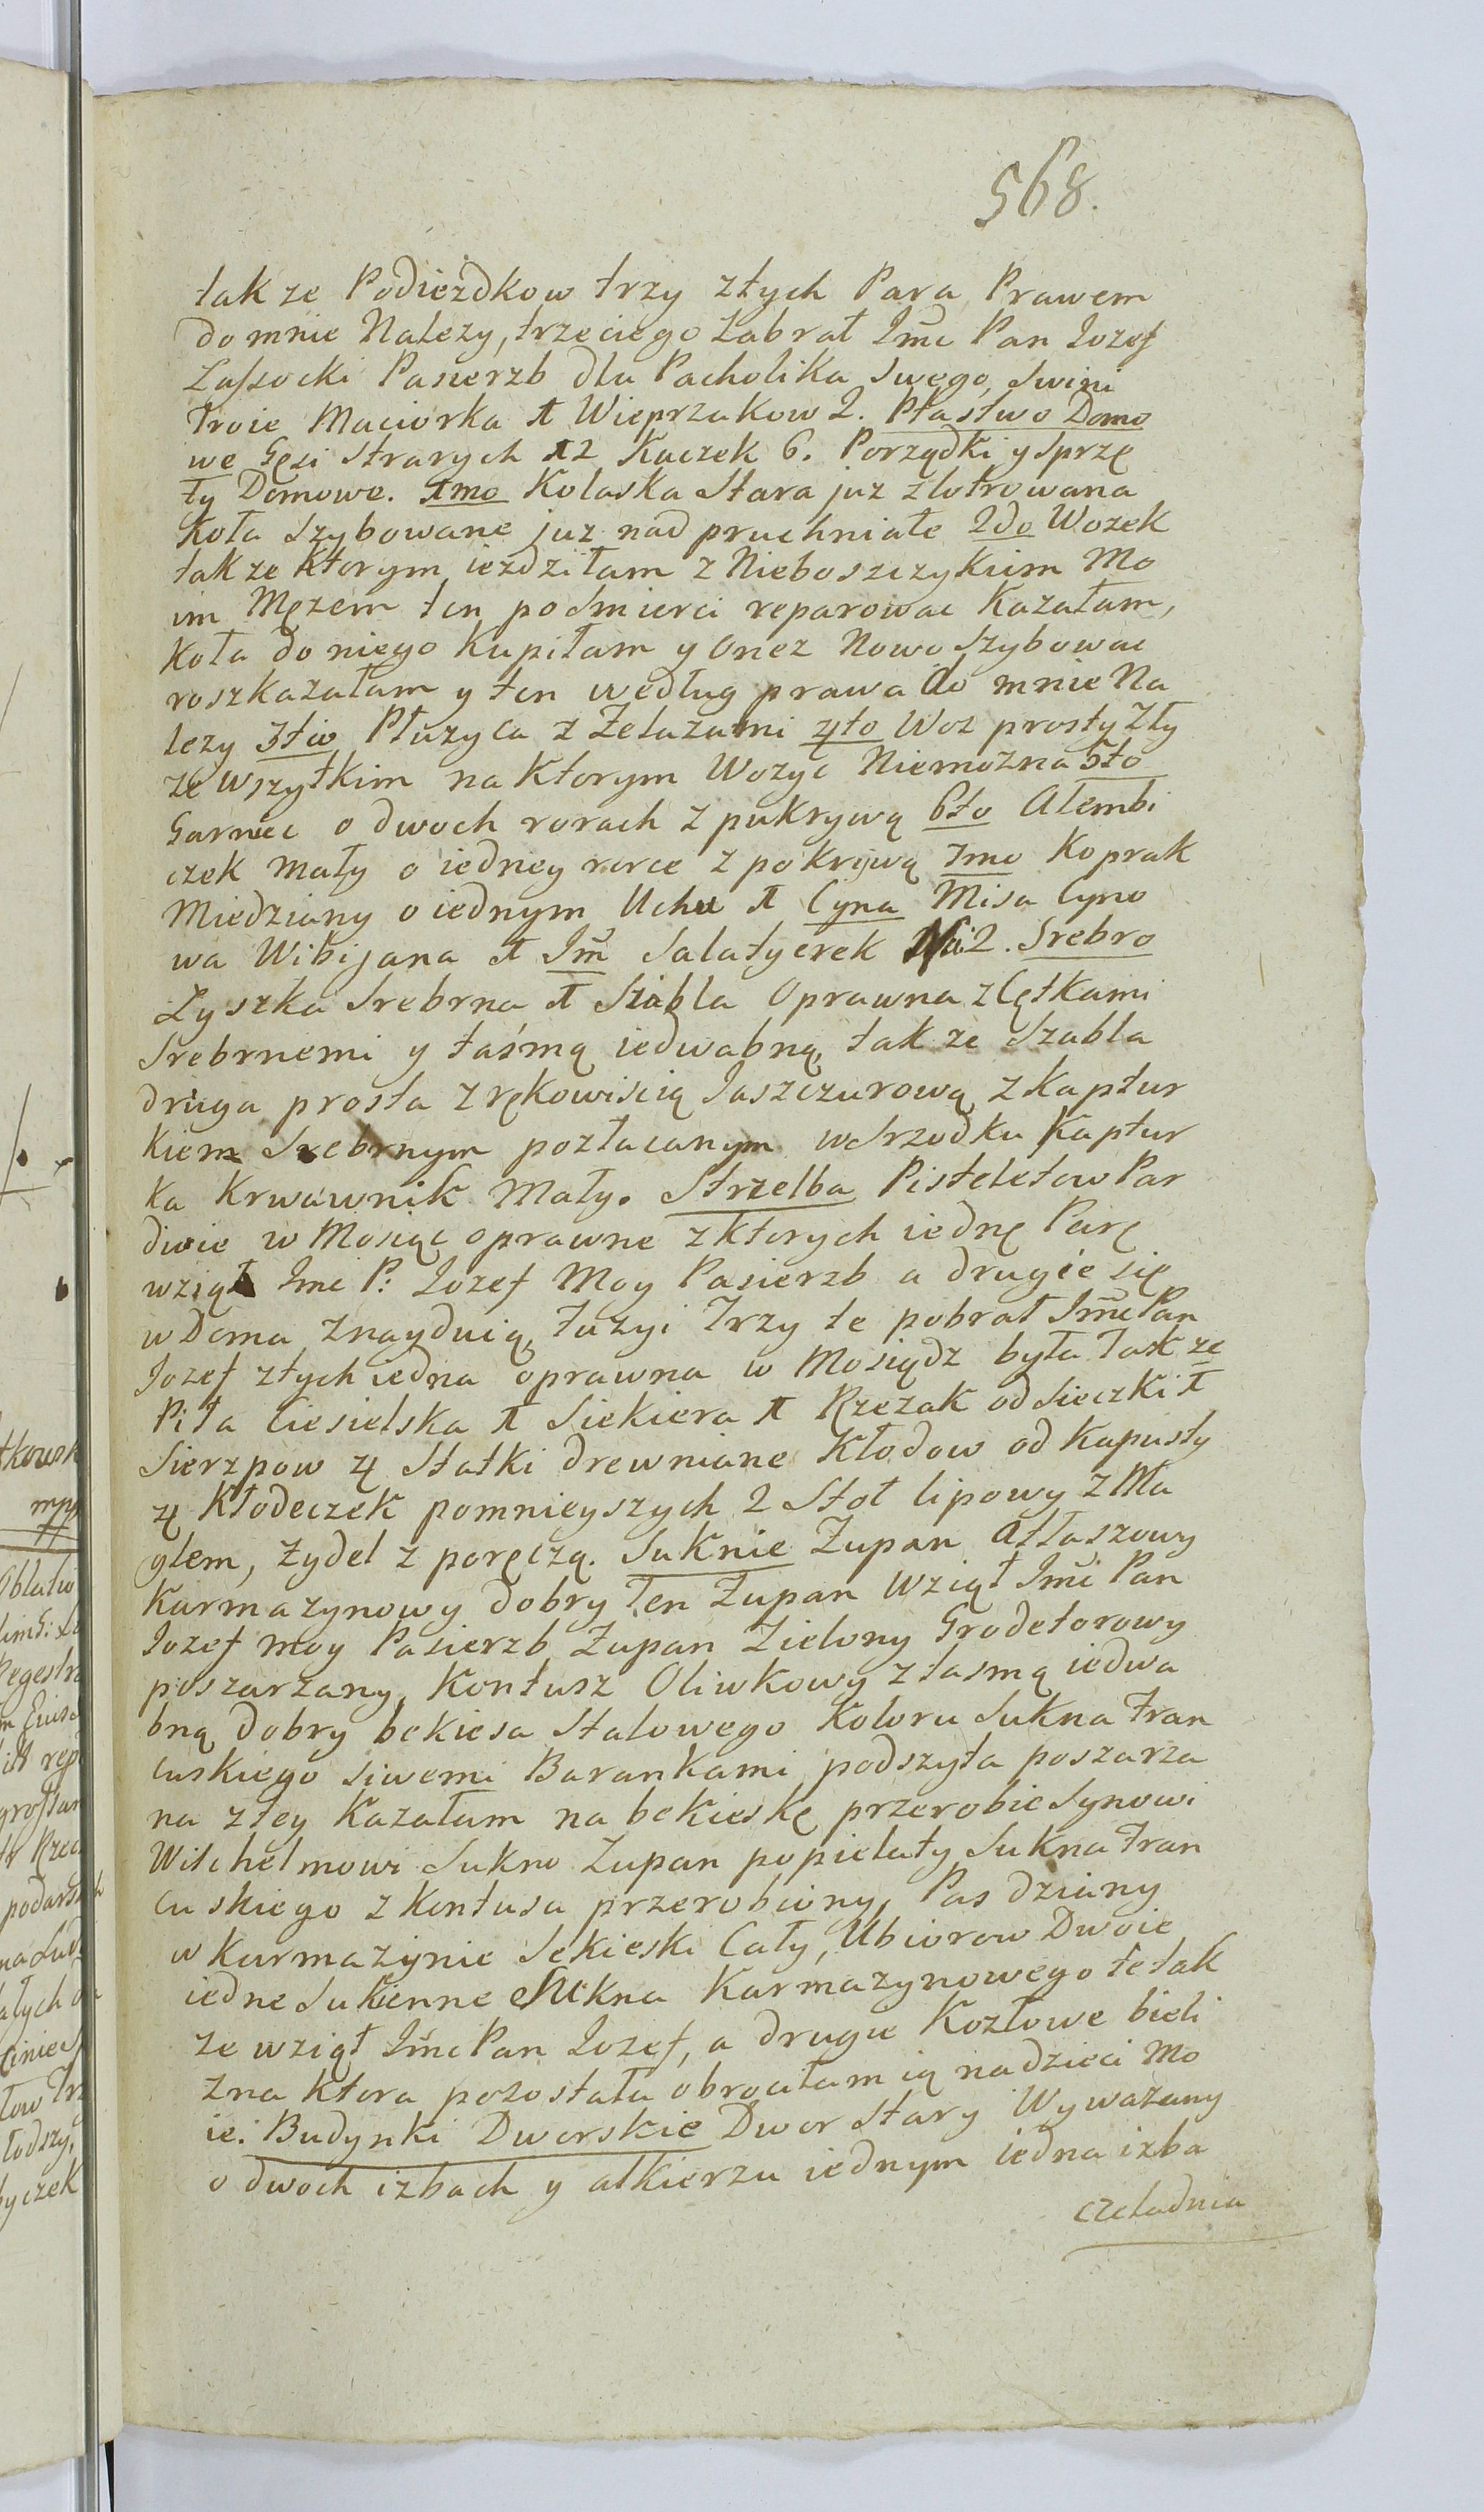 568.
takze Podiezdkow trzy złych Para Prawem
do mnie Nalezy, trzeciego Zabrał Imc Pan Iozef
Lassocki Pasierzb dla Pacholika Swego, Swini
Troie Maciorka 1 Wieprzakow 2. Ptastwo Domo
we Gęsi Strarych 12 Kaczek 6. Porządki y Sprzę
ty Domowe. 1mo Kolaska Stara juz zlotrowana
Koła Szybowane juz nad pruchniałe 2do Wozek
takze Ktorym iezdziłam z Nieboszczykiem Mo
im Męzem ten po Smierci reparowac Kazałam,
Koła do niego Kupiłam y Onez Nowo Szybowac
roszkazałam y ten według prawa do mnie Na
lezy 3tio Płuzyca z Zelazami 4to Woz prosty Zły
ze wszytkim na Ktorym Wozyc Niemozna 5to
Garniec o dwoch rorach z pukrywą 6to Alembi
czek Mały o iedney rorce z pokrywą 7mo Koprak
Miedziany o iednym Uchu 1 Cyna Misa Cyno
wa Wibijana 1 Im Salatyerek 2. Srebro
Łyszka Srebrna 1 Szabla Oprawna z Cętkami
Srebrnemi y taśmą iedwabną, takze Szabla
druga prosta z rękowiscią Jaszczurową z Kaptur
kiem Srebrnym pozłacanym w Srzodku Kaptur
ka Krwawnik Mały. Strzelba Pistoletow Par
dwie w Mosiąc oprawne z ktorych iednę Parę
wziął Imc P: Iozef Moy Pasierzb a drugie się
w Doma Znayduią, Fuzyi Trzy te pobrał Imc Pan
Iozef złych iedna oprawna w Mosiądz była Takze
Piła Ciesielska 1 Siekiera 1 Rzezak od Sieczki 1
Sierzpow 4 Statki drewniane Kłodow od Kapusty
4 Kłodeczek pomnieyszych 2 Stoł lipowy z Ma
glem, Zydel z poręczą. Suknie Zupan Attaszowy
Karmazynowy dobry Ten Zupan Wziął Imc Pan
Iozef moy Pasierzb Zupan Zielony Grodetorowy
poszarzany, Kontusz Oliwkowy z tasmą iedwa
bną dobry bekiesa Stalowego Koloru Sukna Fran
cuskiego Siwemi Barankami podszyta poszarza
na z tey Kazałam na bekieskę przerobic Synowi
Wilchelmowi Sukno Zupan popielaty Sukna Fran
cuskiego z Kontusa przerobiony, Pas dziany
w Karmazynie Sekieski Cały, Ubiorow Dwoie
iedne Sukienne Sukna Karmazynowego te tak
ze wziął Imc Pan Iozef, a drugie Kozłowe bieli
zna Ktora pozostała obrociłam ią na dzieci Mo
ie. Budynki Dworskie Dwor Stary Wywazany
o dwoch izbach y alkierzu iednym iedna izba
czeladnia